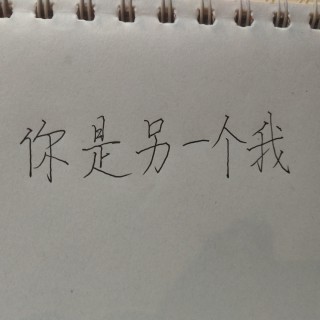 你是另一个我